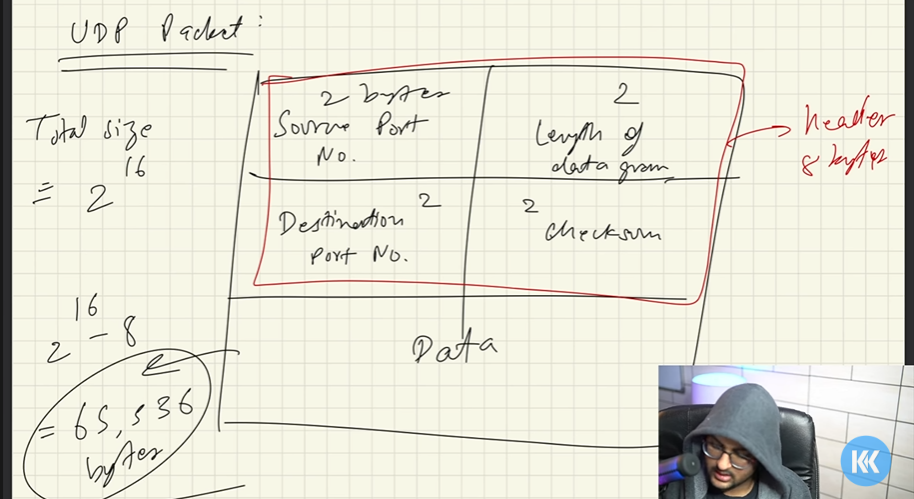 UDP Packet:
Total size
= 2^16
2^16 - 8
= 65,536
bytes
2 bytes
Source Port
No.
2
Length of
data gram
Destination 2
Port No.
2
checksum
Data
header
8 bytes
K